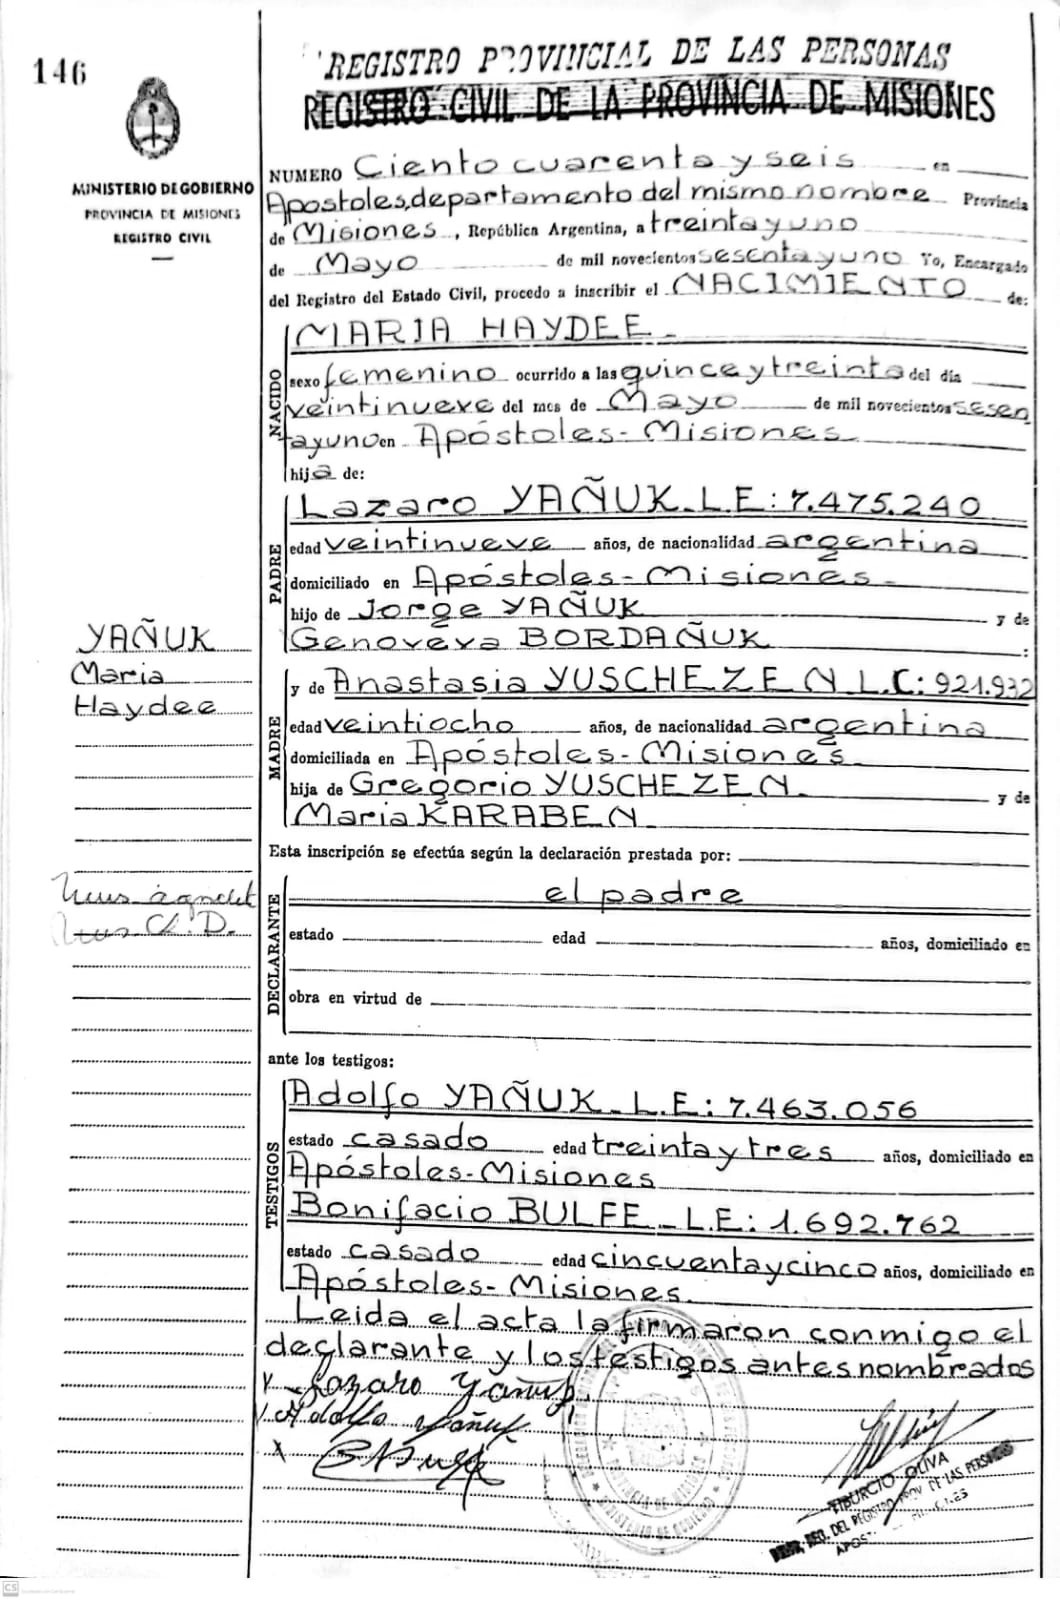 146
MINISTERIO DE GOBIERNO
PROVINCIA DE MISIONES
REGISTRO CIVIL
REGISTRO PROVINCIAL DE LAS PERSONAS
REGISTRO CIVIL DE LA PROVINCIA DE MISIONES
NUMERO Ciento cuarenta y seis en
Apostoles, departamento del mismo nombre Provincia
de Misiones, República Argentina, a treinta y uno
de Mayo de mil novecientos sesenta y uno Yo, Encargado
del Registro del Estado Civil, procedo a inscribir el NACIMIENTO de:
NACIDO
MARIA HAYDEE
sexo femenino ocurrido a las quince y treinta del día
veintinueve del mes de Mayo de mil novecientos sesen
ta y uno en Apóstoles - Misiones
hija de:
PADRE
Lazaro YAÑUK - L.E: 7.475.240
edad veintinueve años, de nacionalidad argentina
domiciliado en Apóstoles - Misiones -
hijo de Jorge YAÑUK y de
Genoveva BORDAÑUK :
YAÑUK
Maria
Haydee
MADRE
y de Anastasia YUSCHEZEN L.C: 921.932
edad veintiocho años, de nacionalidad argentina
domiciliada en Apóstoles - Misiones
hija de Gregorio YUSCHEZEN y de
Maria KARABEN
Esta inscripción se efectúa según la declaración prestada por:
DECLARANTE
el padre
estado edad años, domiciliado en
obra en virtud de
ante los testigos:
TESTIGOS
Adolfo YAÑUK - L.E: 7.463.056
estado casado edad treinta y tres años, domiciliado en
Apóstoles - Misiones
Bonifacio BULFE - L.E: 1.692.762
estado casado edad cincuenta y cinco años, domiciliado en
Apóstoles - Misiones.
Leida el acta la firmaron conmigo el
declarante y los testigos antes nombrados
Lazaro Yañuk
Adolfo Yañuk
PROVINCIA DE MISIONES
MINISTERIO DE GOBIERNO
TIBURCIO OLIVA
REG. DEL REGISTRO PROV. DE LAS PERSONAS
CS